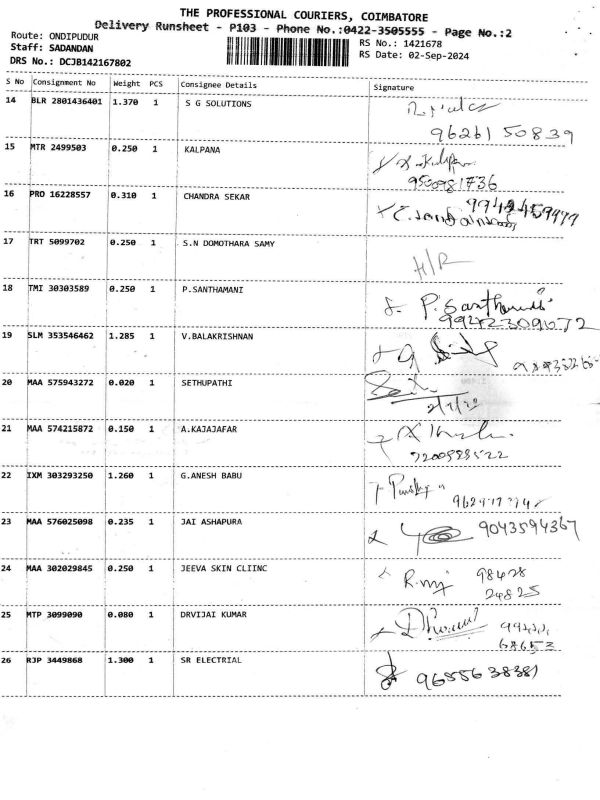 THE PROFESSIONAL COURIERS, COIMBATORE
Delivery Runsheet - P103 - Phone No.:0422-3505555 - Page No.:2
Route: ONDIPUDUR
RS No.: 1421678
Staff: SADANDAN
RS Date: 02-Sep-2024
DRS No.: DCJB142167802
S No Consignment No Weight PCS Consignee Details Signature
14 BLR 2801436401 1.370 1 S G SOLUTIONS
96261 50839
15 MTR 2499503 0.250 1 KALPANA
16 PRO 16228557 0.310 1 CHANDRA SEKAR
17 TRT 5099702 0.250 1 S.N DOMOTHARA SAMY
H/R
18 TMI 30303589 0.250 1 P.SANTHAMANI
P. Santhamani
19 SLM 353546462 1.285 1 V.BALAKRISHNAN
20 MAA 575943272 0.020 1 SETHUPATHI
21 MAA 574215872 0.150 1 A.KAJAJAFAR
22 IXM 303293250 1.260 1 G.ANESH BABU
23 MAA 576025098 0.235 1 JAI ASHAPURA
9043594367
24 MAA 302029845 0.250 1 JEEVA SKIN CLIINC
98428
24825
25 MTP 3099090 0.080 1 DRVIJAI KUMAR
26 RJP 3449868 1.300 1 SR ELECTRIAL
9655638381